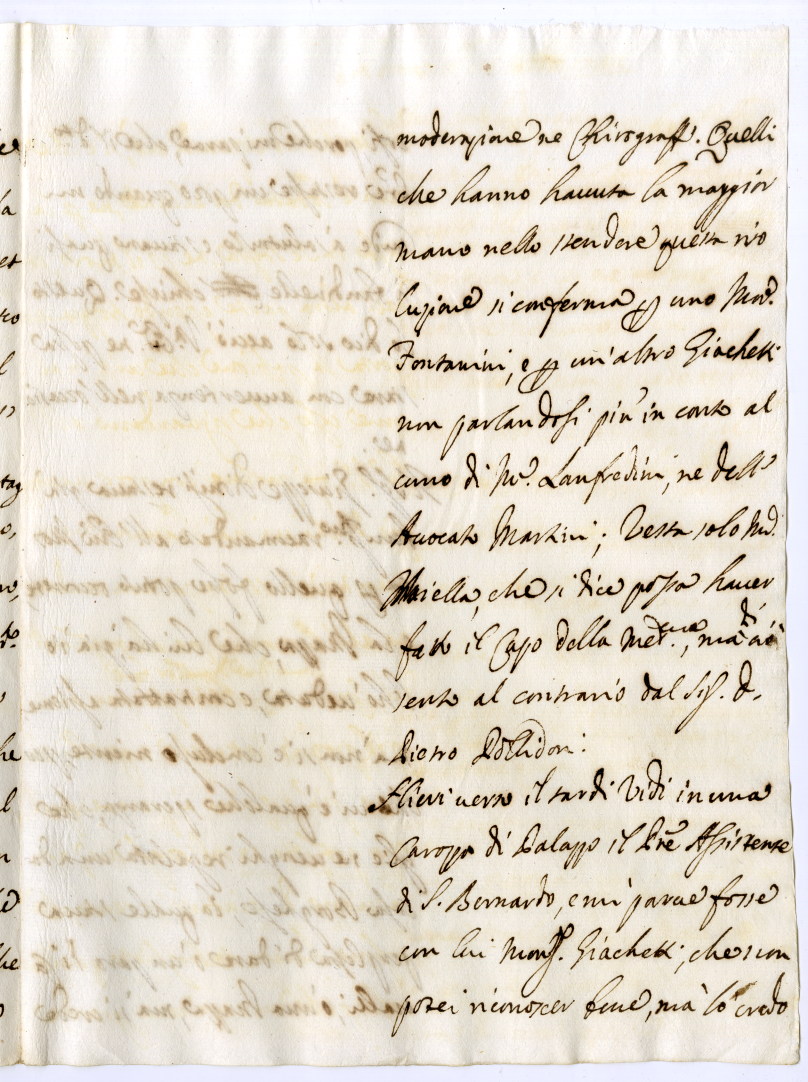 moderazione ne Chirograff. Quelli
che hanno hauuta la maggior
mano nello stendere questa riso
luzione si conferma esser uno Mons.
Fontanini, e un altro Giachetti
non parlandosi piu in conto al
cuno di M. Lanfredini, ne dell
Auocato Martini; Resta solo Md.
che si dice possa hauer
fatto il Capo della Med.ma, mà di ciò
sento al contrario dal Sig. D.
Pietro Pollidori:
Hieri uerso il tardi Vidi in una
Carozza di Palazzo il Pre Assistente
di S. Bernardo, e mi parue fosse
con lui Mons. Giachetti, che non
potei riconoscer bene, mà lo credo